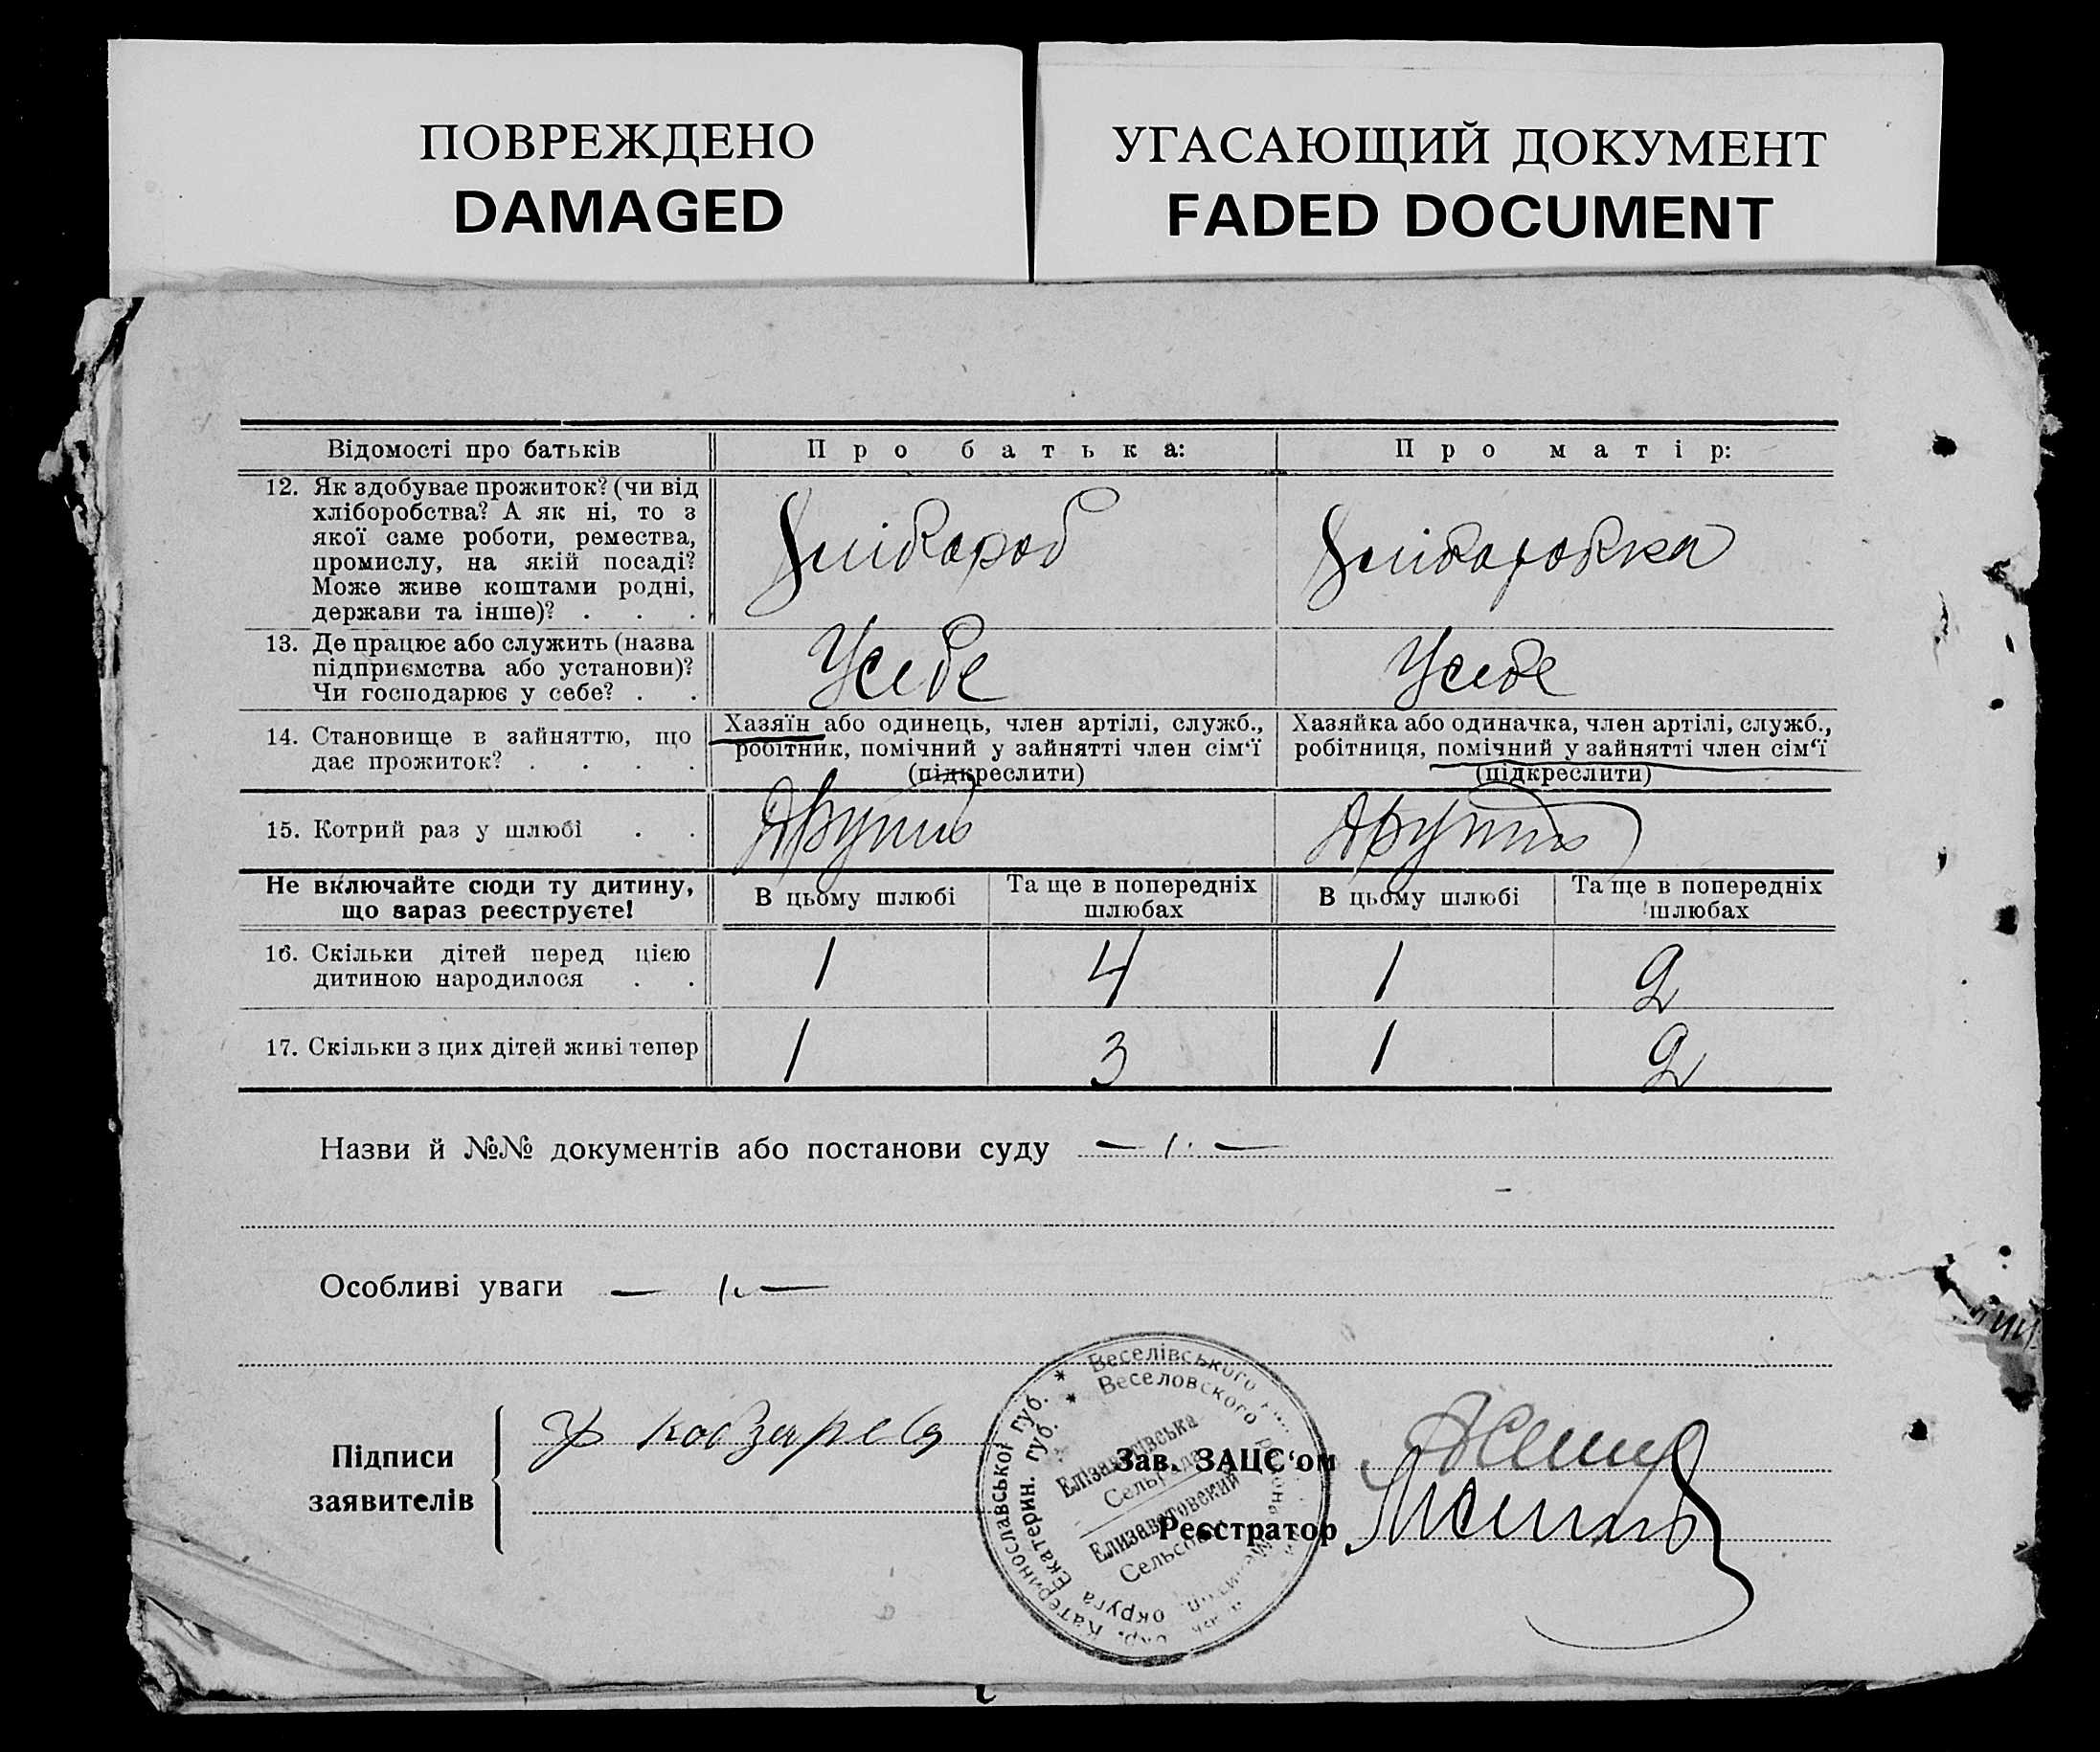 ПОВРЕЖДЕНО
DAMAGED
УГАСАЮЩИЙ ДОКУМЕНТ
FADED DOCUMENT
Відомості про батьків
Про батька:
Про матір:
12. Як здобуває прожиток? (чи від
хліборобства? А як ні, то з
якої саме роботи, ремества,
промислу, на якій посаді?
Може живе коштами родні,
держави та інше)? . . .
Хлібороб
Хліборобка
13. Де працює або служить (назва
підприємства або установи)?
Чи господарює у себе? . .
У себе
У себе
14. Становище в зайняттю, що
дає прожиток? . . . .
Хазяїн або одинець, член артілі, служб.,
робітник, помічний у зайнятті член сім‘ї
(підкреслити)
Хазяйка або одиначка, член артілі, служб.,
робітниця, помічний у зайнятті член сім‘ї
(підкреслити)
15. Котрий раз у шлюбі . .
Не включайте сюди ту дитину,
що зараз реєструєте!
В цьому шлюбі
Та ще в попередніх
шлюбах
В цьому шлюбі
Та ще в попередніх
шлюбах
16. Скільки дітей перед цією
дитиною народилося . .
1
4
1
2
17. Скільки з цих дітей живі тепер
1
3
1
2
Назви й №№ документів або постанови суду
Особливі уваги
Підписи
заявителів
Зав. ЗАЦС‘ом
Реєстратор
Веселівського
Катеринославської губ. *
Веселовского
округа Екатерин. губ. *
Елізаветівська
Сельрада
Елизаветовский